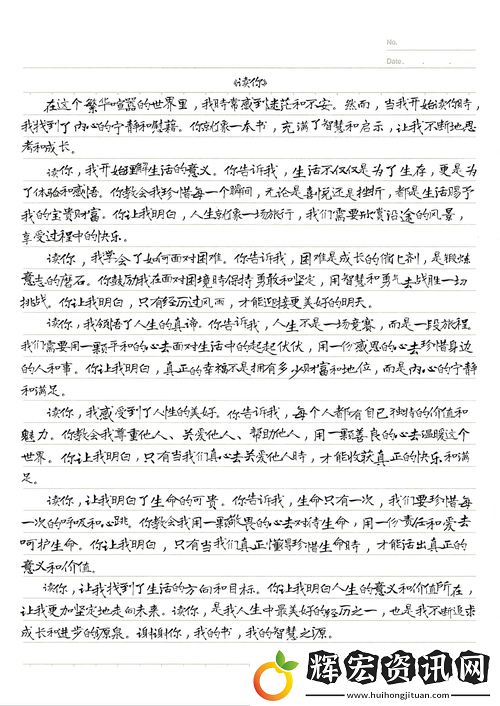 No.
Date. . .
《读你》
在这个繁华喧嚣的世界里，我时常感到迷茫和不安。然而，当我开始读你时，
我找到了内心的宁静和慰藉。你就像一本书，充满了智慧和启示，让我不断地思
考和成长。
读你，我开始理解生活的意义。你告诉我，生活不仅仅是为了生存，更是为
了体验和感悟。你教会我珍惜每一个瞬间，无论是喜悦还是挫折，都是生活赐予
我的宝贵财富。你让我明白，人生就像一场旅行，我们需要欣赏沿途的风景，
享受过程中的快乐。
读你，我学会了如何面对困难。你告诉我，困难是成长的催化剂，是锻炼
意志的磨石。你鼓励我在面对困境时保持勇敢和坚定，用智慧和勇气去战胜一切
挑战。你让我明白，只有经历过风雨，才能迎接更美好的明天。
读你，我领悟了人生的真谛。你告诉我，人生不是一场竞赛，而是一段旅程。
我们需要用一颗平和的心去面对生活中的起起伏伏，用一份感恩的心去珍惜身边
的人和事。你让我明白，真正的幸福不是拥有多少财富和地位，而是内心的宁静
和满足。
读你，我感受到了人性的美好。你告诉我，每个人都有自己独特的价值和
魅力。你教会我尊重他人、关爱他人、帮助他人，用一颗善良的心去温暖这个
世界。你让我明白，只有当我们真心去关爱他人时，才能收获真正的快乐和满
足。
读你，让我明白了生命的可贵。你告诉我，生命只有一次，我们要珍惜每
一次的呼吸和心跳。你教会我用一颗敬畏的心去对待生命，用一份责任和爱去
呵护生命。你让我明白，只有当我们真正懂得珍惜生命时，才能活出真正的
意义和价值。
读你，让我找到了生活的方向和目标。你让我明白人生的意义和价值所在，
让我更加坚定地走向未来。读你，是我人生中最美好的经历之一，也是我不断追求
成长和进步的源泉。谢谢你，我的书，我的智慧之源。
辉宏资讯网
www.huihongjituan.com